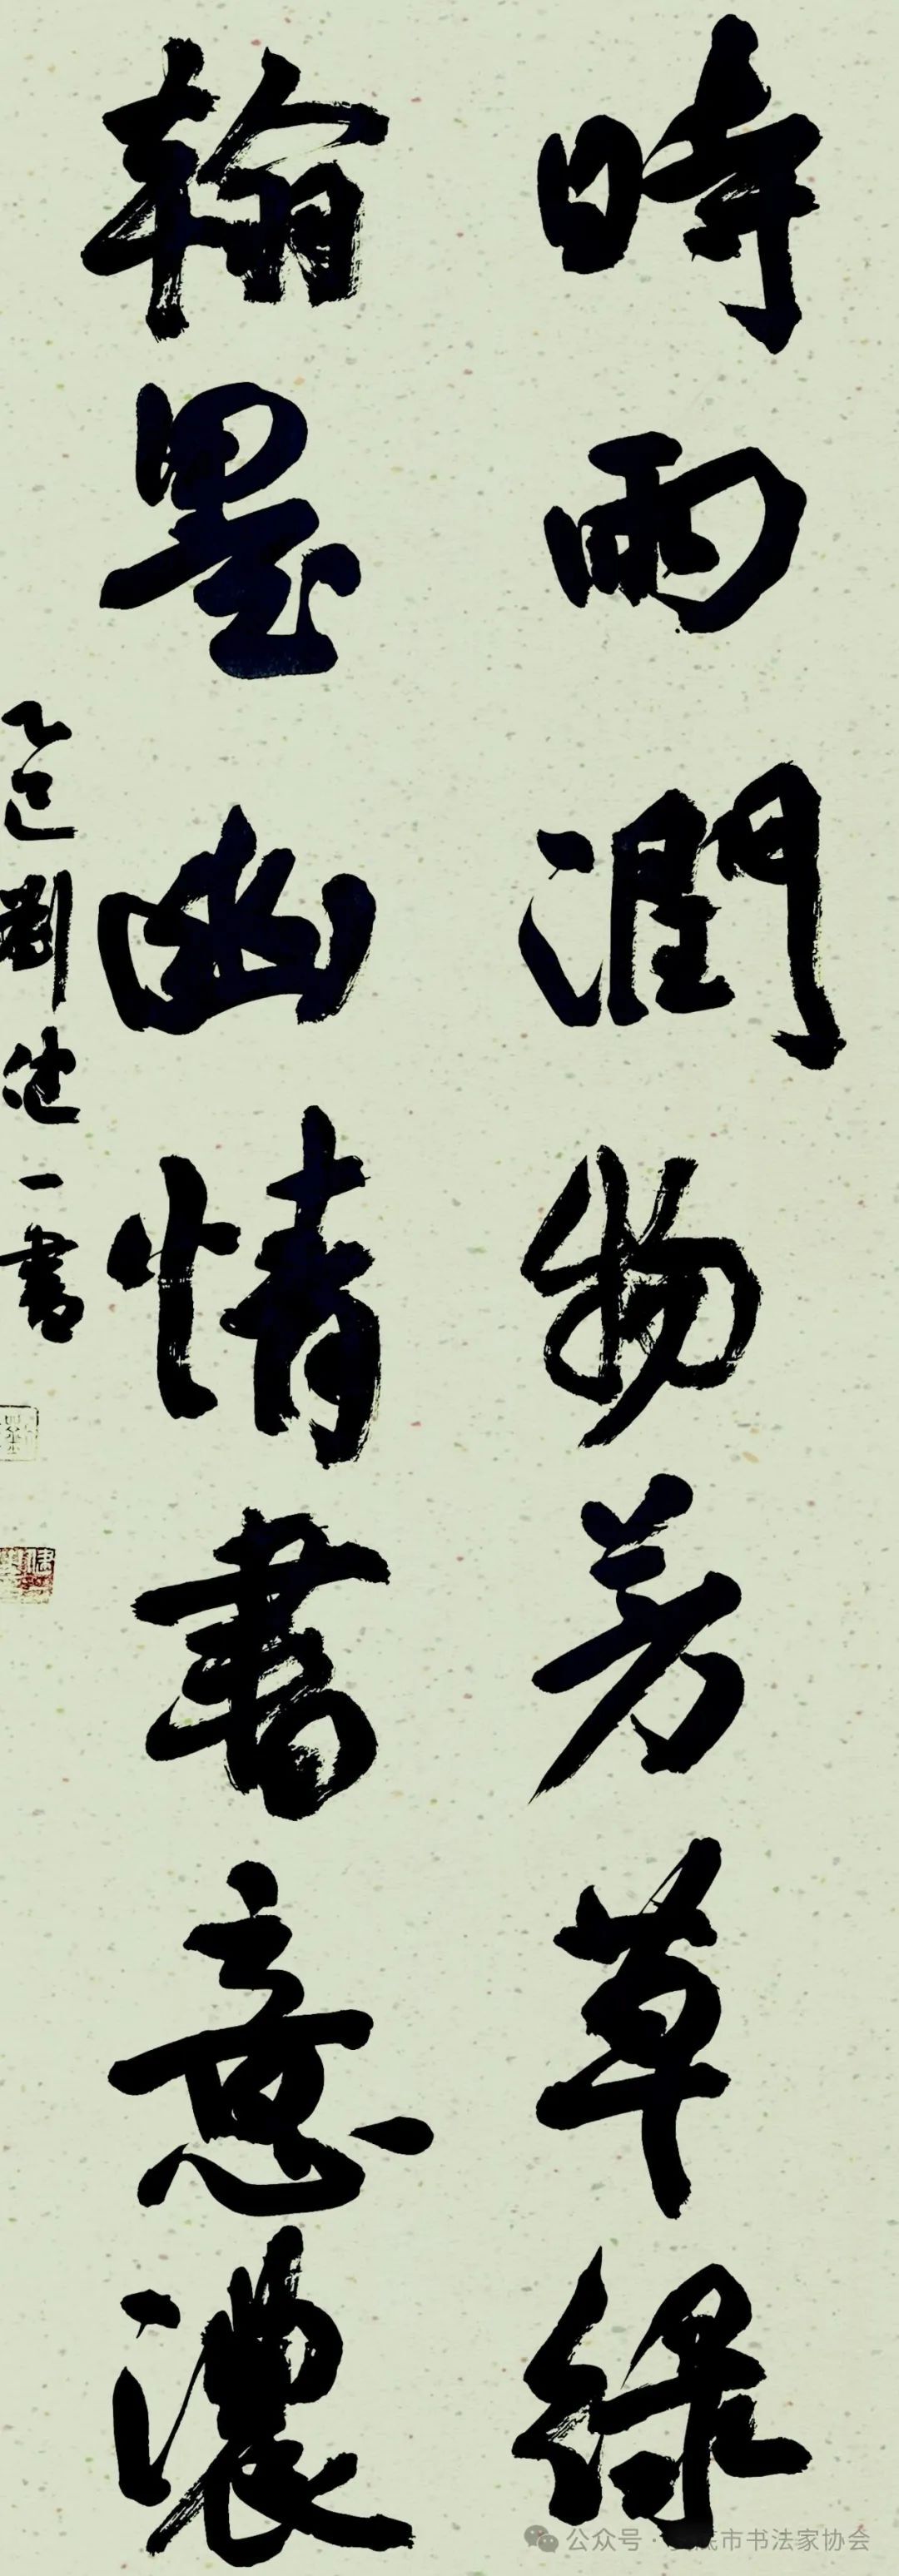 時雨潤物芳草綠
翰墨幽情書意濃
乙巳劉健一書
公众号·底市书法家协会